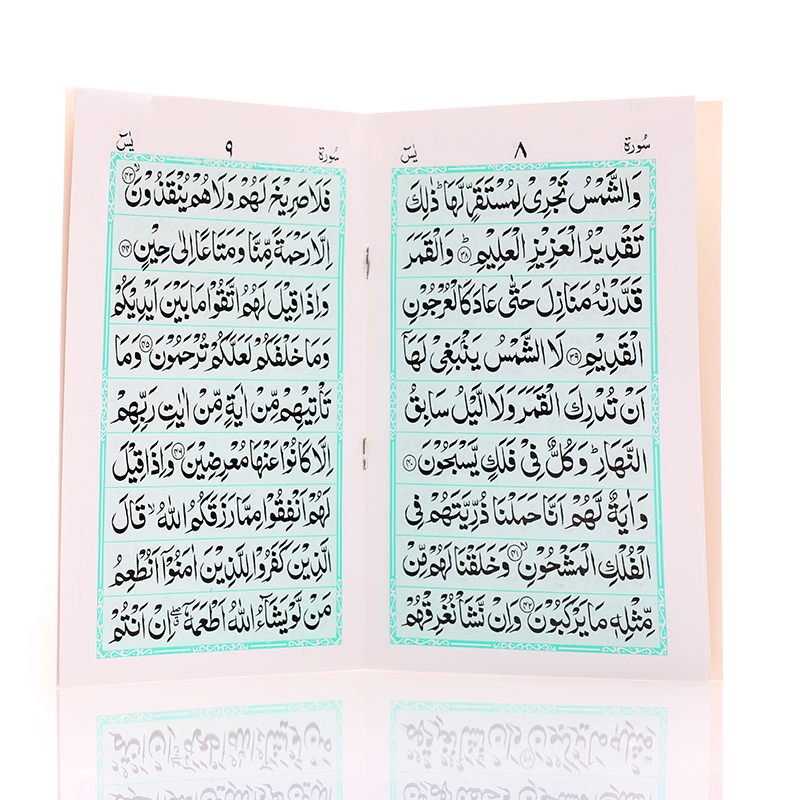 سُورة ٨ يٰسٓ
وَالشَّمْسُ تَجْرِىْ لِمُسْتَقَرٍّ لَّهَا ؕ ذٰلِكَ
تَقْدِيْرُ الْعَزِيْزِ الْعَلِيْمِ ؕ ﴿٣٨﴾ وَالْقَمَرَ
قَدَّرْنٰهُ مَنَازِلَ حَتّٰى عَادَ كَالْعُرْجُوْنِ
الْقَدِيْمِ ﴿٣٩﴾ لَا الشَّمْسُ يَنْۢبَغِىْ لَهَاۤ
اَنْ تُدْرِكَ الْقَمَرَ وَلَا الَّيْلُ سَابِقُ
النَّهَارِ ؕ وَكُلٌّ فِىْ فَلَكٍ يَّسْبَحُوْنَ ﴿٤٠﴾
وَاٰيَةٌ لَّهُمْ اَنَّا حَمَلْنَا ذُرِّيَّتَهُمْ فِى
الْفُلْكِ الْمَشْحُوْنِ ۙ ﴿٤١﴾ وَخَلَقْنَا لَهُمْ مِّنْ
مِّثْلِهٖ مَا يَرْكَبُوْنَ ﴿٤٢﴾ وَاِنْ نَّشَاْ نُغْرِقْهُمْ
سورة ٩ يٰسٓ
فَلَا صَرِيْخَ لَهُمْ وَلَا هُمْ يُنْقَذُوْنَ ۙ ﴿٤٣﴾
اِلَّا رَحْمَةً مِّنَّا وَمَتَاعًا اِلٰى حِيْنٍ ﴿٤٤﴾
وَاِذَا قِيْلَ لَهُمُ اتَّقُوْا مَا بَيْنَ اَيْدِيْكُمْ
وَمَا خَلْفَكُمْ لَعَلَّكُمْ تُرْحَمُوْنَ ﴿٤٥﴾ وَمَا
تَاْتِيْهِمْ مِّنْ اٰيَةٍ مِّنْ اٰيٰتِ رَبِّهِمْ
اِلَّا كَانُوْا عَنْهَا مُعْرِضِيْنَ ﴿٤٦﴾ وَاِذَا قِيْلَ
لَهُمْ اَنْفِقُوْا مِمَّا رَزَقَكُمُ اللّٰهُ ۙ قَالَ
الَّذِيْنَ كَفَرُوْا لِلَّذِيْنَ اٰمَنُوْۤا اَنُطْعِمُ
مَنْ لَّوْ يَشَآءُ اللّٰهُ اَطْعَمَهٗۤ ۖ اِنْ اَنْتُمْ